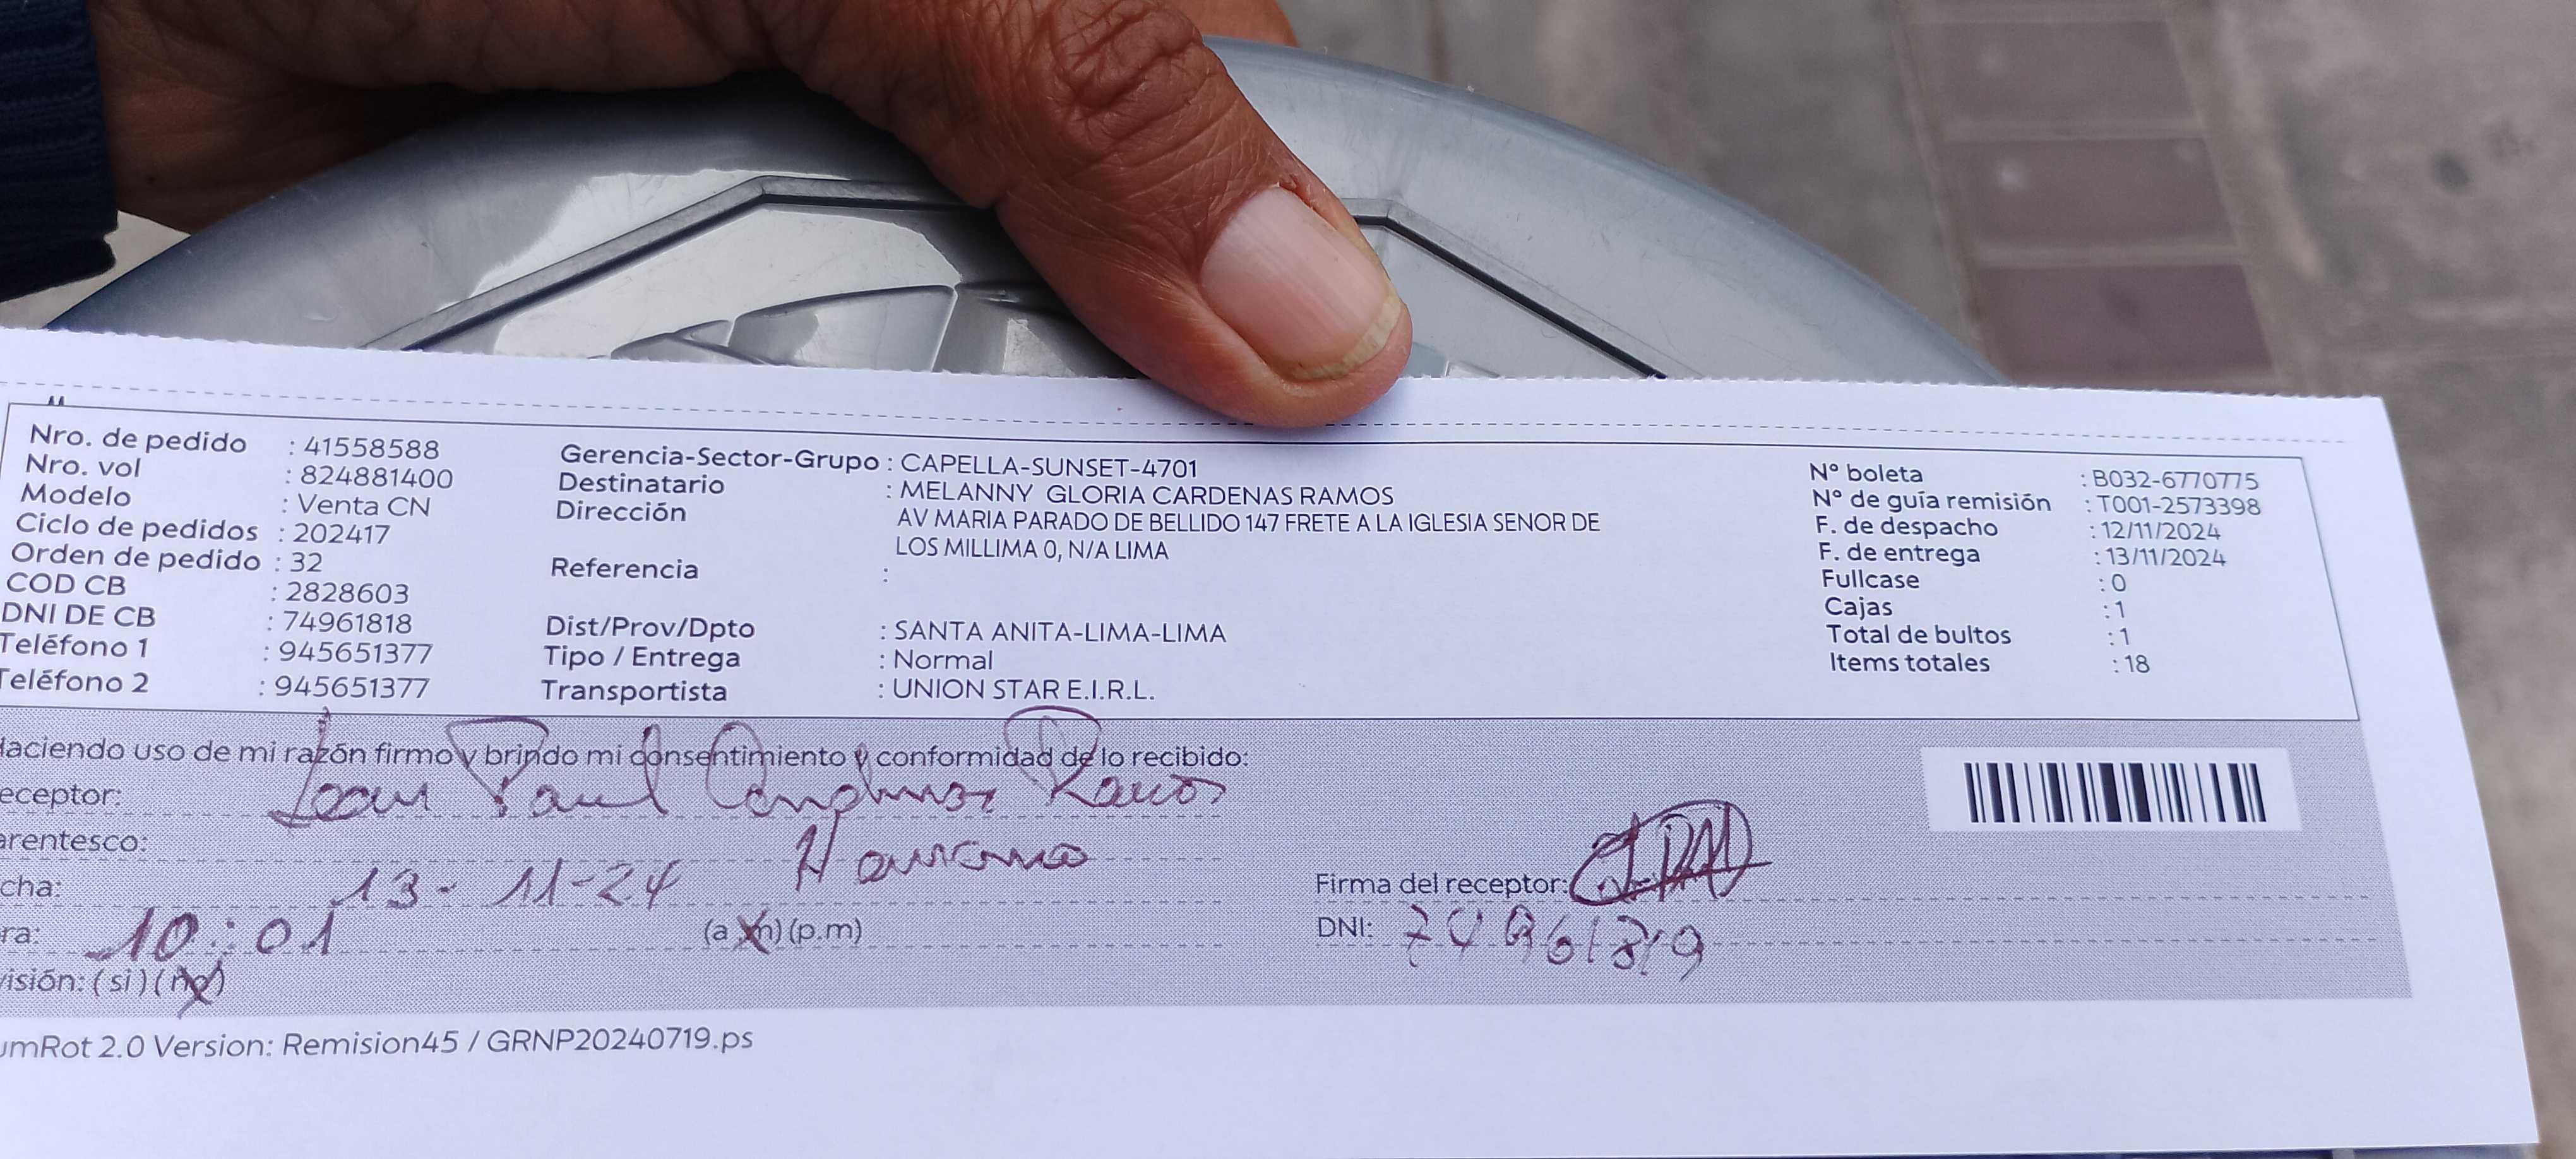 Nro. de pedido : 41558588
Nro. vol : 824881400
Modelo : Venta CN
Ciclo de pedidos : 202417
Orden de pedido : 32
COD CB : 2828603
DNI DE CB : 74961818
Teléfono 1 : 945651377
Teléfono 2 : 945651377
Gerencia-Sector-Grupo : CAPELLA-SUNSET-4701
Destinatario : MELANNY GLORIA CARDENAS RAMOS
Dirección AV MARIA PARADO DE BELLIDO 147 FRETE A LA IGLESIA SENOR DE
LOS MILLIMA 0, N/A LIMA
Referencia :
Dist/Prov/Dpto : SANTA ANITA-LIMA-LIMA
Tipo / Entrega : Normal
Transportista : UNION STAR E.I.R.L.
N° boleta : B032-6770775
N° de guía remisión : T001-2573398
F. de despacho : 12/11/2024
F. de entrega : 13/11/2024
Fullcase : 0
Cajas : 1
Total de bultos : 1
Items totales : 18
Haciendo uso de mi razón firmo y brindo mi consentimiento y conformidad de lo recibido:
eceptor: Paul Ramos
arentesco:
cha: 13-11-24
ra: 10:01 (a.m) (p.m)
visión: (si) (no)
Firma del receptor:
DNI:
umRot 2.0 Version: Remision45 / GRNP20240719.ps